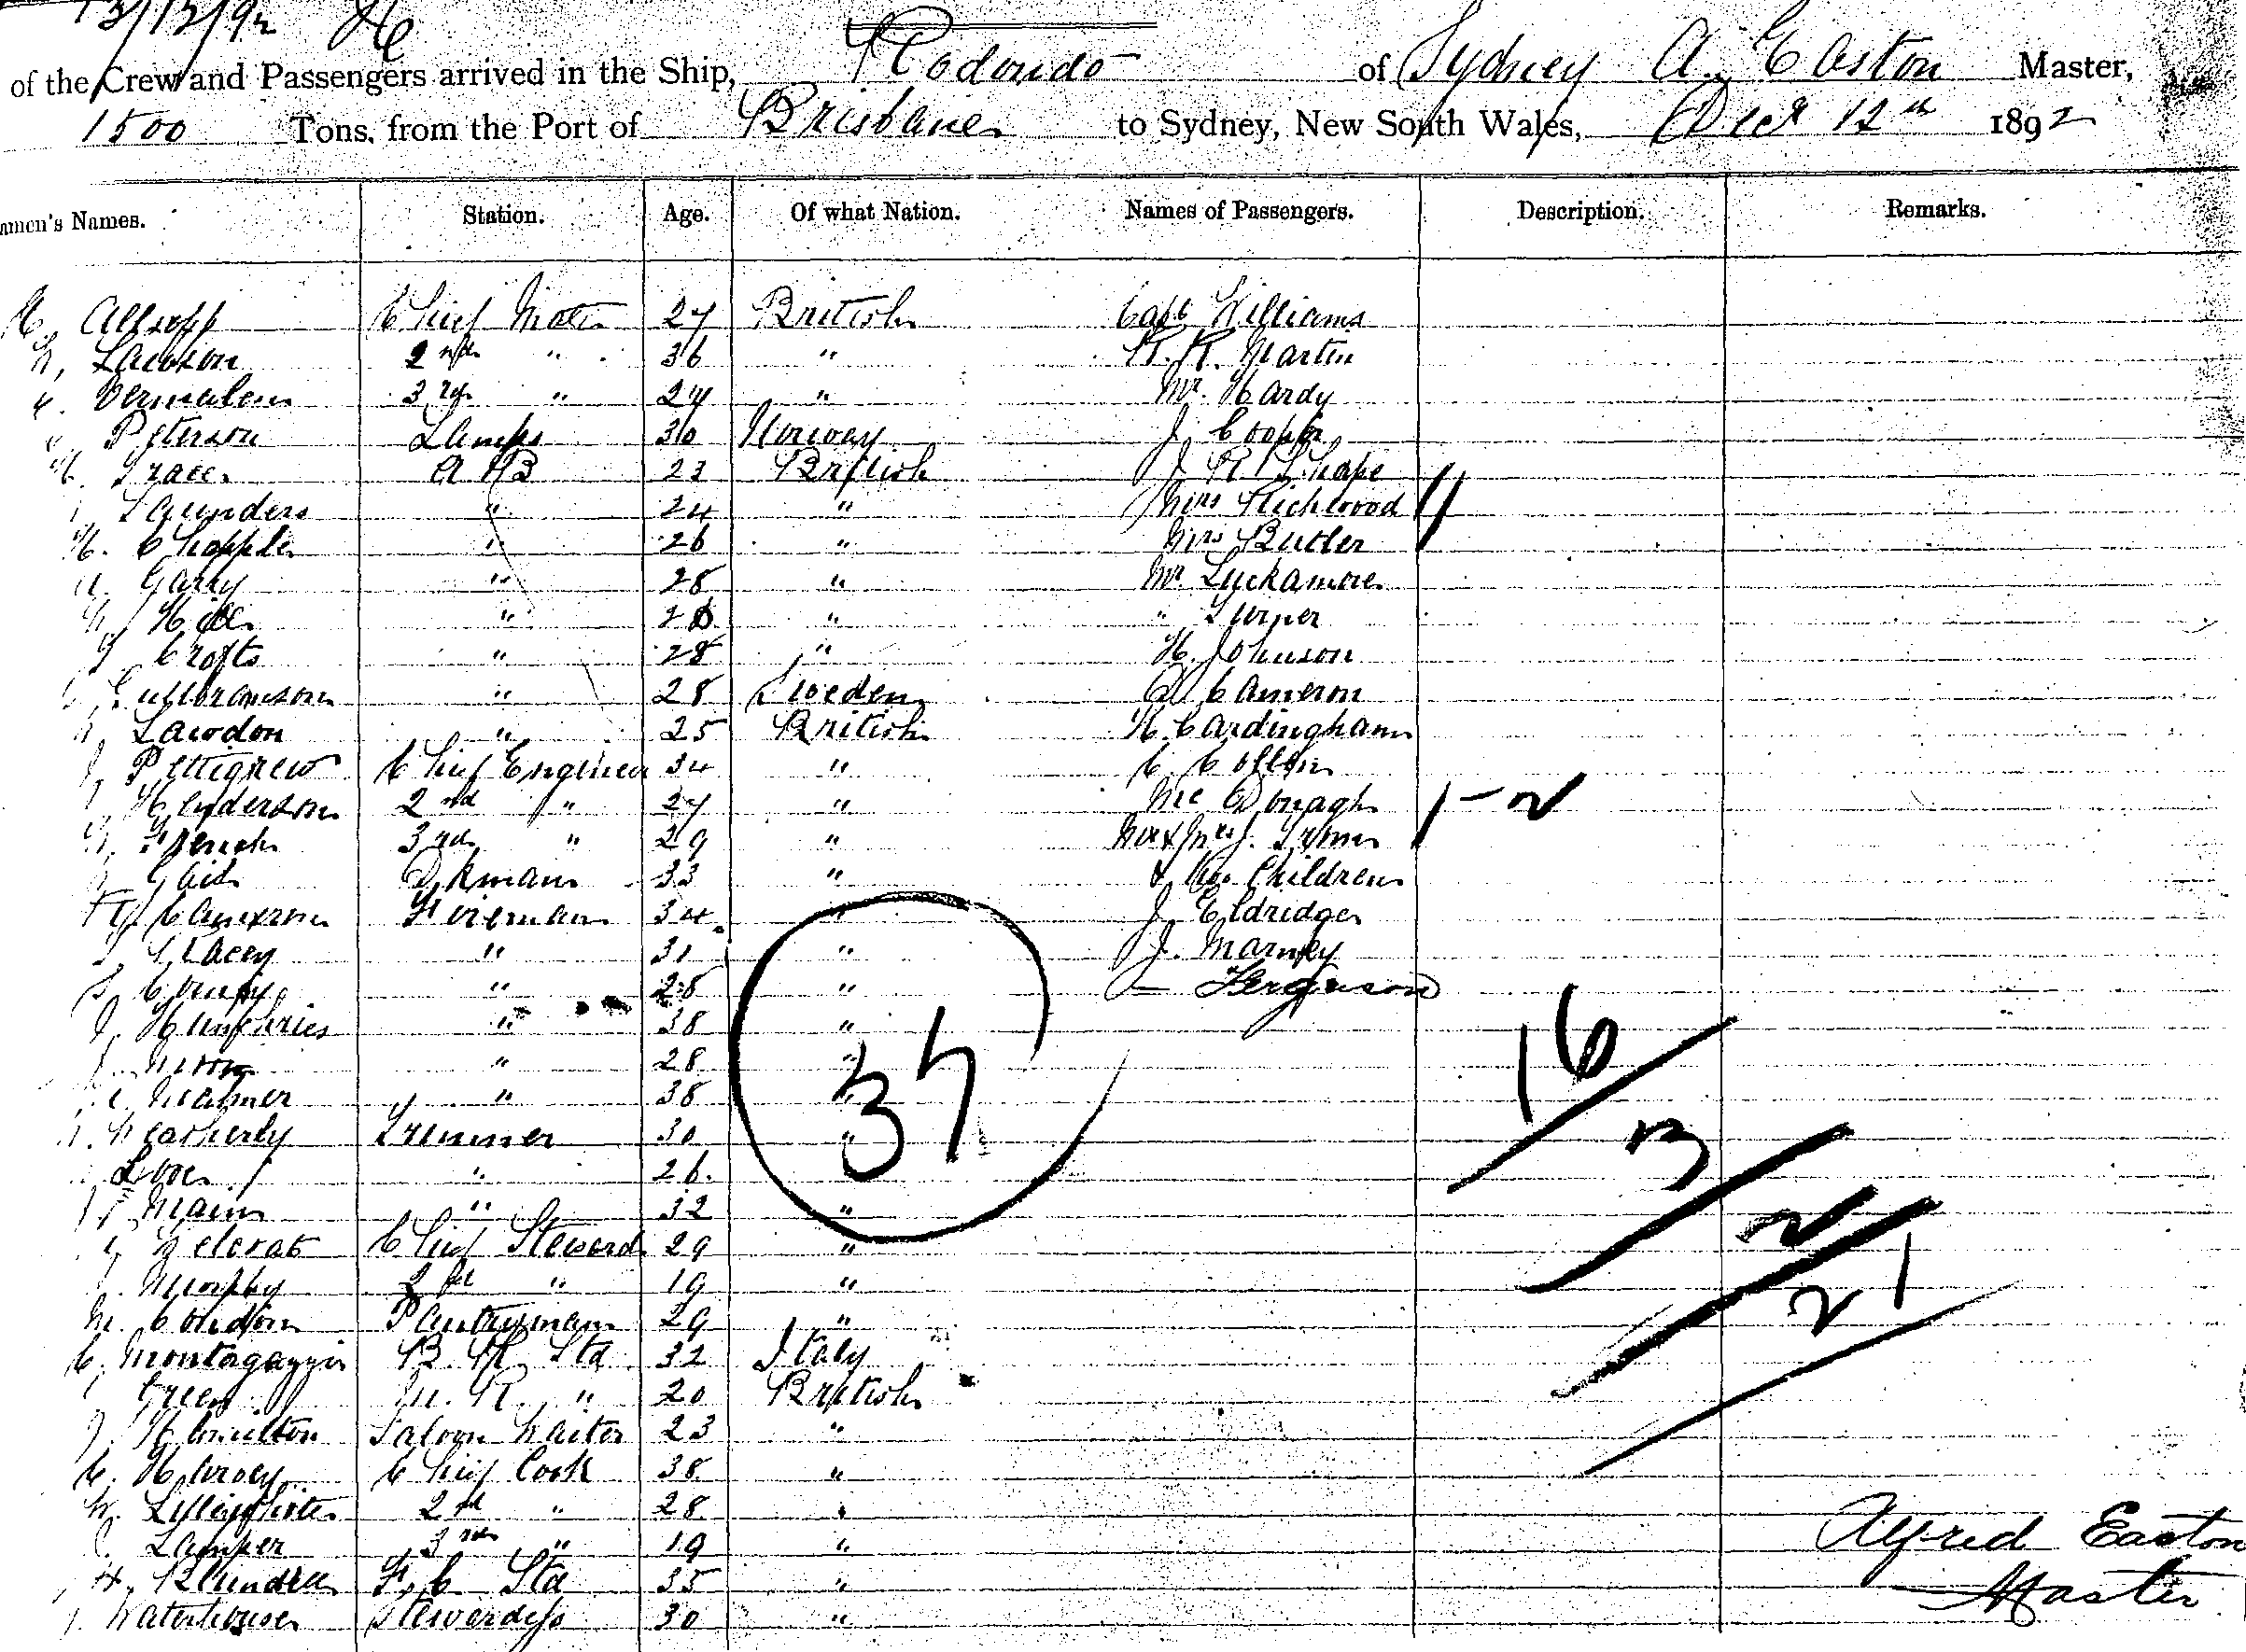 13/12/92
of the Crew and Passengers arrived in the Ship, Rodondo of Sydney A. Easton Master,
1500 Tons, from the Port of Brisbane to Sydney, New South Wales, Decr 12th 1892
amen's Names. Station. Age. Of what Nation. Names of Passengers. Description. Remarks.
Allsopp Chief Mate 27 British Capt Williams
Lawson 2nd " 36 " R. R. Martin
Vermeulen 3rd " 24 " Mr. Hardy
Peterson Lamps 30 Norway J. Cooper
Grace A B 23 British J.
Saunders " 24 " Mrs Richwood
H. Chapple " 26 " Mrs Butler
Garry " 28 " Mr. Luckamore
Hill " " " Turner
Crofts " 28 " H. Johnson
" 28 Sweden Cameron
Lawdon " 25 British H. Cardingham
Pettigrew Chief Engineer 34 " C. Collin
Henderson 2nd " 27 " Mc Donagh 1-2
French 3rd " 29 " J.
Gair Dkman 33 " & Children
Cameron Fireman 34 " J. Eldridge
Stacey " 31 " J. Marney
" 28 " — Ferguson
Humphries " 38 "
" 28 " 16
" 38 " 37
Weatherly Trimmer 30 " 3
Love " 26. "
Main " 32 " 2
Chief Steward 29 "
Murphy 2nd " 19 " 21
M. Condon Pantryman 29 "
C. Montagazzi B. R. Std 32 Italy
Green M. R. " 20 British
J. Hamilton Saloon Waiter 23 "
C. Harvey Chief Cook 38 "
W. 2nd " 28 "
Lamper 3rd " 19 " Alfred Easton
H. Blundell F. C. Std 35 " Master
Waterhouse Stewardess 30 "